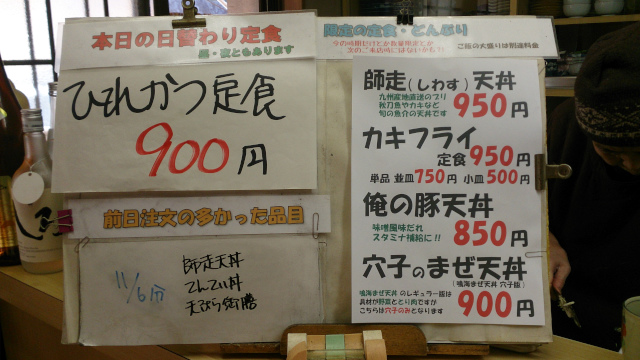 本日の日替わり定食
昼・夜ともあります
ひれかつ定食
900円
前日注文の多かった品目
11/6分
師走天丼
てんてい丼
天ぷら御膳
限定の定食・どんぶり
ご飯の大盛りは別途料金
師走(しわす)天丼
九州産地直送のブリ
秋刀魚やカキなど
旬の魚介の天丼です
950円
カキフライ
定食950円
単品 並皿750円 小皿500円
俺の豚天丼
味噌風味だれ
スタミナ補給に!!
850円
穴子のまぜ天丼
(鳴海まぜ天丼 穴子版)
鳴海まぜ天丼 のレギュラー版は
具材が野菜ととり肉ですが
こちらは穴子のみとなります
900円